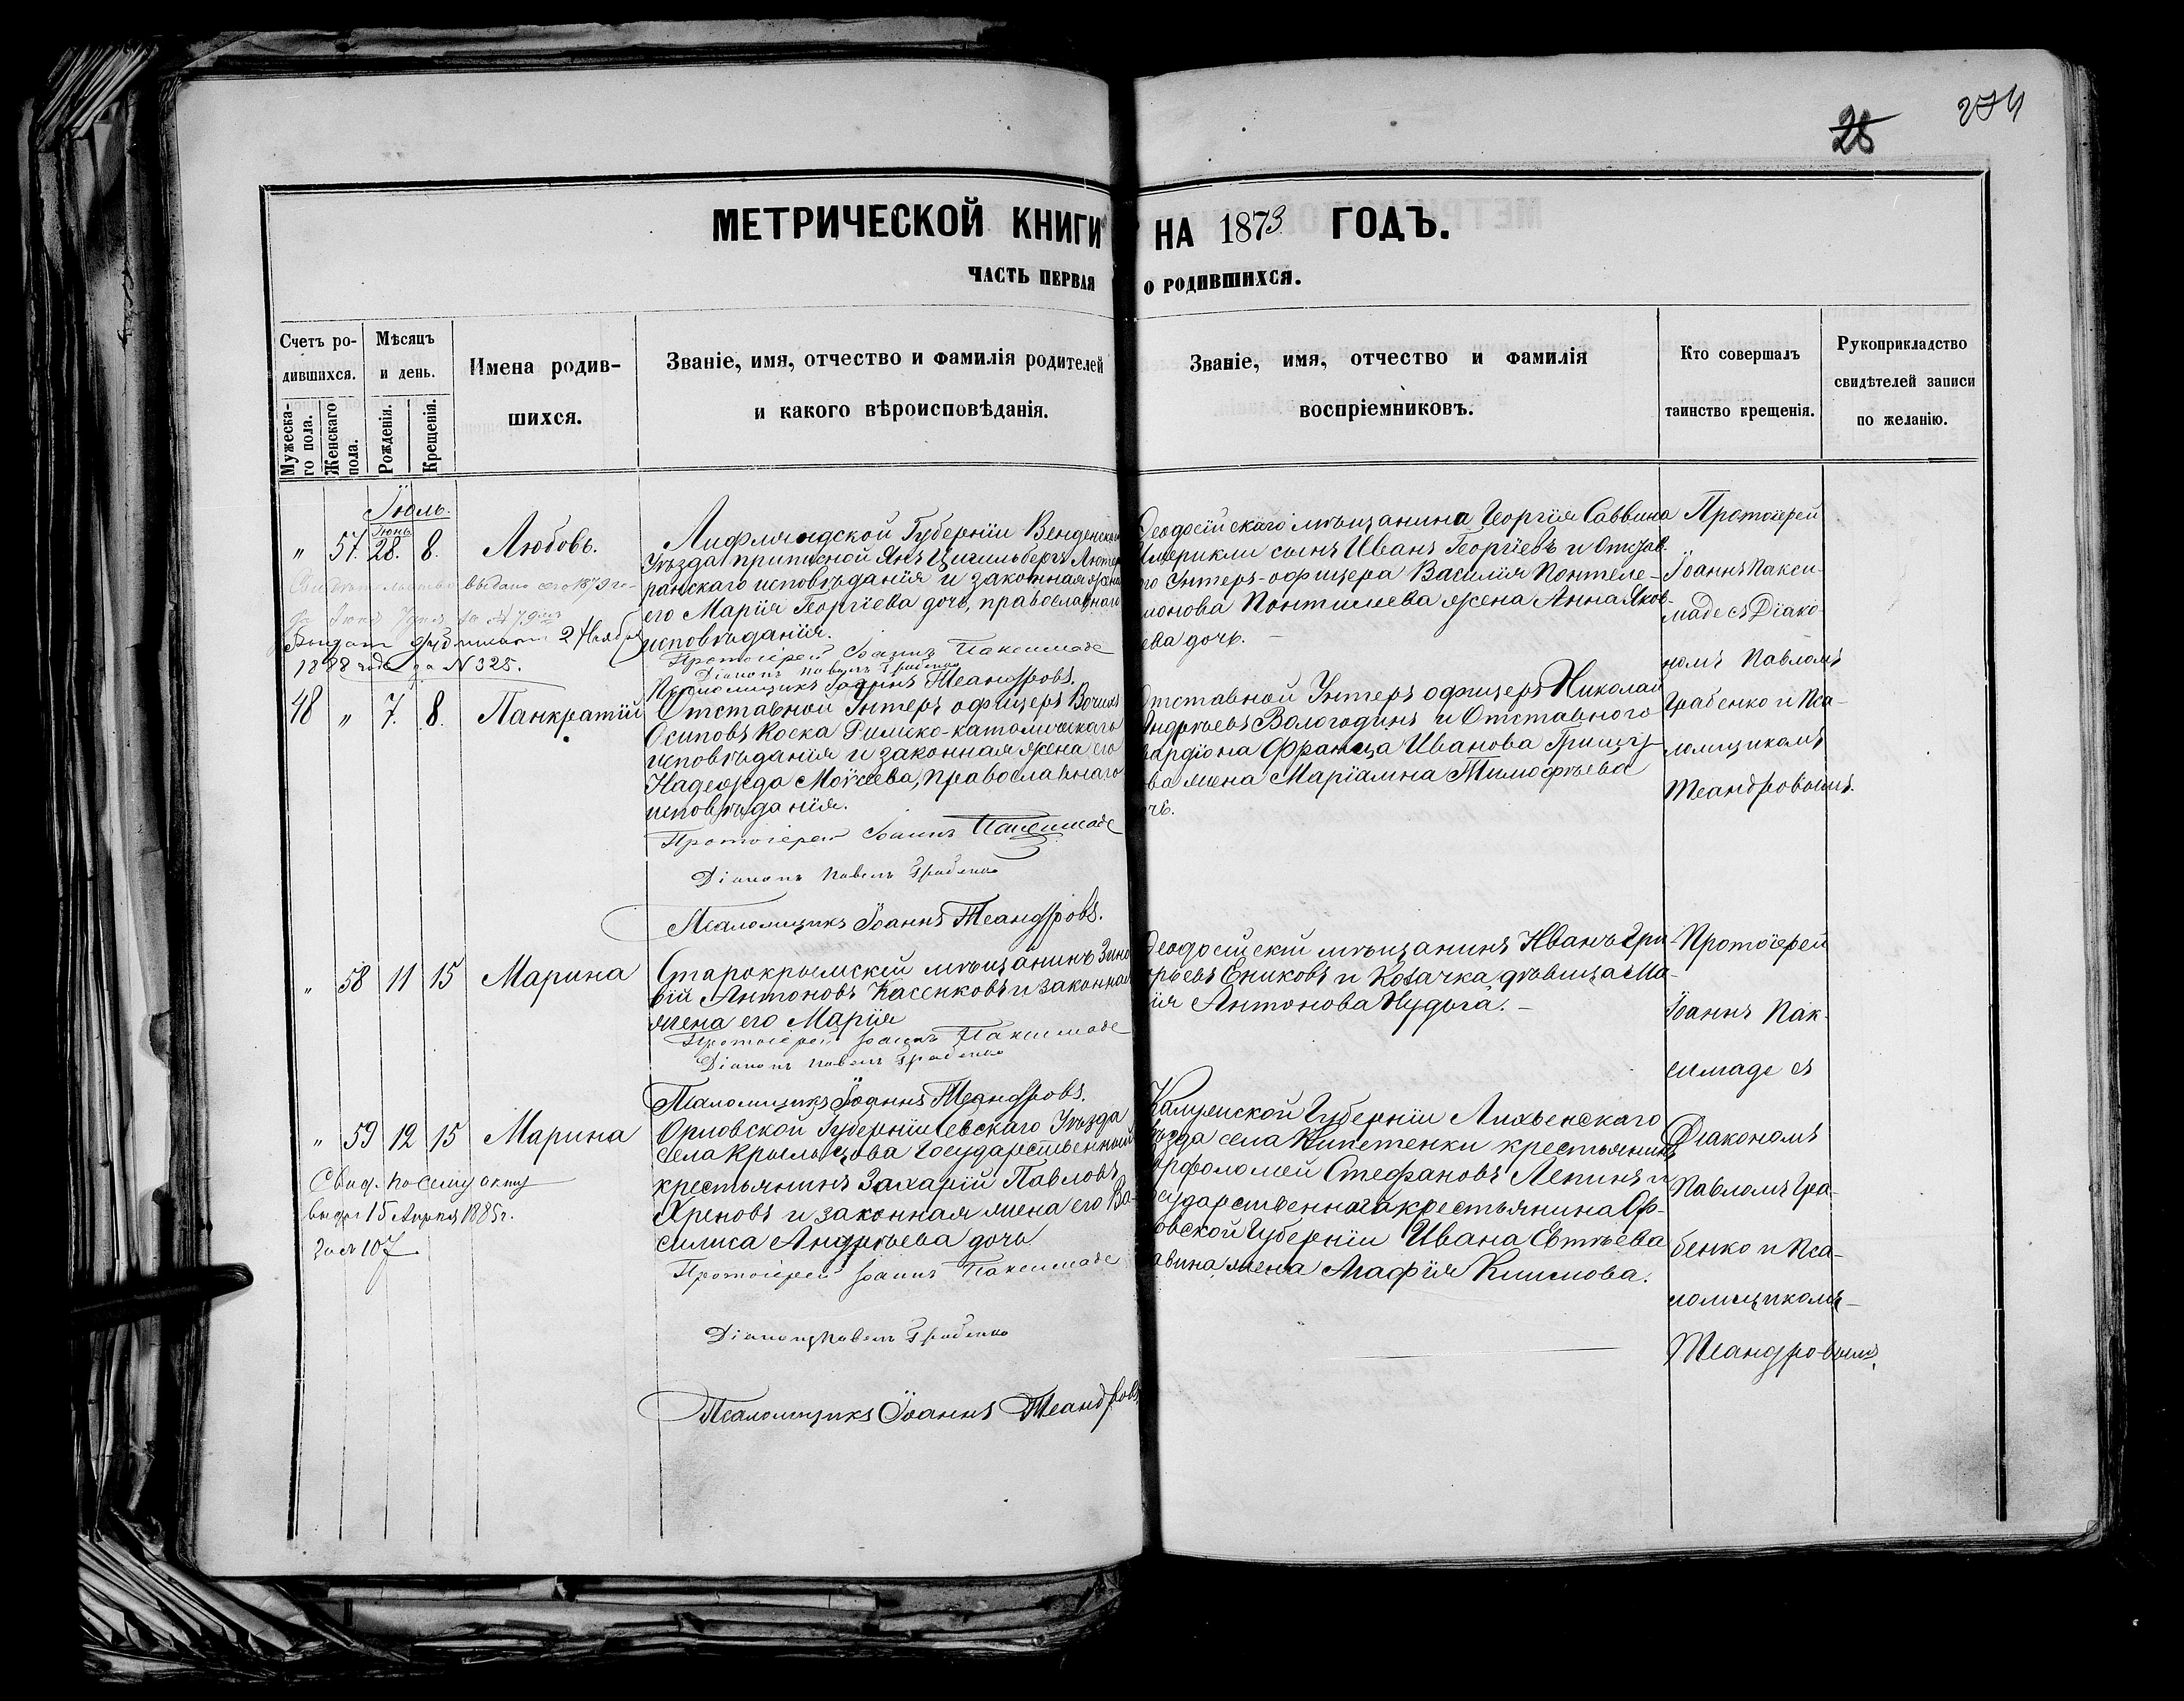 28
274
МЕТРИЧЕСКОЙ КНИГИ НА 1873 ГОДЪ.
ЧАСТЬ ПЕРВАЯ О РОДИВШИХСЯ.
Счетъ ро-
дившихся.
Мужеска-
го пола.
Женскаго
пола.
Мѣсяцъ
и день.
Рожденія.
Крещенія.
Имена родив-
шихся.
Званіе, имя, отчество и фамилія родителей
и какого вѣроисповѣданія.
Званіе, имя, отчество и фамилія
воспріемниковъ.
Кто совершалъ
таинство крещенія.
Рукоприкладство
свидѣтелей записи
по желанію.
Іюль.
Іюнь
" 57. 28. 8. Любовь.
Лифляндской Губерніи Венденскаго
уѣзда приписной Янъ Люте
ранскаго исповѣданія и законная жена
его Марія Георгіева дочь, православнаго
исповѣданія.
Протоіерей Іоаннъ Паксимаде
Діаконъ Павелъ Грабенко
Псаломщикъ Іоаннъ Теандровъ.
Ѳеодосійскаго мѣщанина Георгія Саввина
сынъ Иванъ Георгіевъ и Отстав-
го Унтеръ-офицера Василія Понтеле-
монова жена Анна Яков-
ева дочь. –
Протоіерей
Іоаннъ Пакси-
маде съ Діако-
номъ Павломъ
Грабенко и Пса-
ломщикомъ
Теандровымъ.
Свидѣтельство выдано сего 1879 го-
да Іюня
Выданъ дубликатъ 2 Ноября
1888 года за № 325.
48 " 7. 8. Панкратій
Отставной Унтеръ офицеръ
Осиповъ Коска Римско-католическаго
исповѣданія и законная жена его
Надежда Моѵсеева, православнаго
исповѣданія.
Протоіерей Іоаннъ Паксимаде
Діаконъ Павелъ Грабенко
Псаломщикъ Іоаннъ Теандровъ.
Отставной Унтеръ офицеръ Николай
Андреевъ Вологодинъ и Отставного
Франца Иванова
ва жена Маріамна Тимофѣева
чь.
" 58 11 15 Марина
Старокрымскій мѣщанинъ Зино
вій Антоновъ Касенковъ и законная
жена его Марія
Протоіерей Іоаннъ Паксимаде
Діаконъ Павелъ Грабенко
Псаломщикъ Іоаннъ Теандровъ.
Ѳеодосійскій мѣщанинъ Иванъ Гри-
рьевъ Ениковъ и Козачка дѣвица Ма-
ія Антонова Нудьга. –
Протоіерей
Іоаннъ Пак-
симаде съ
Діакономъ
Павломъ Гра-
бенко и Пса-
ломщикомъ
Теандровымъ.
" 59 12 15 Марина
Орловской Губерніи Уѣзда
села Крыльцова Государственный
крестьянинъ Захарій Павловъ
Яреновъ и законная жена его Ва-
силиса Андреева дочь
Протоіерей Іоаннъ Паксимаде
Діаконъ Павелъ Грабенко
Псаломщикъ Іоаннъ Теандровъ
Калужской Губерніи
ѣзда села крестьянинъ
арфоломей Стефановъ Лепинъ и
осударственнаго крестьянина Ор-
овской Губерніи Ивана Евтѣева
авина жена Агафія Климова.
Свид. по сему акту
выдр 15 Апрѣля 1885 г.
За № 107